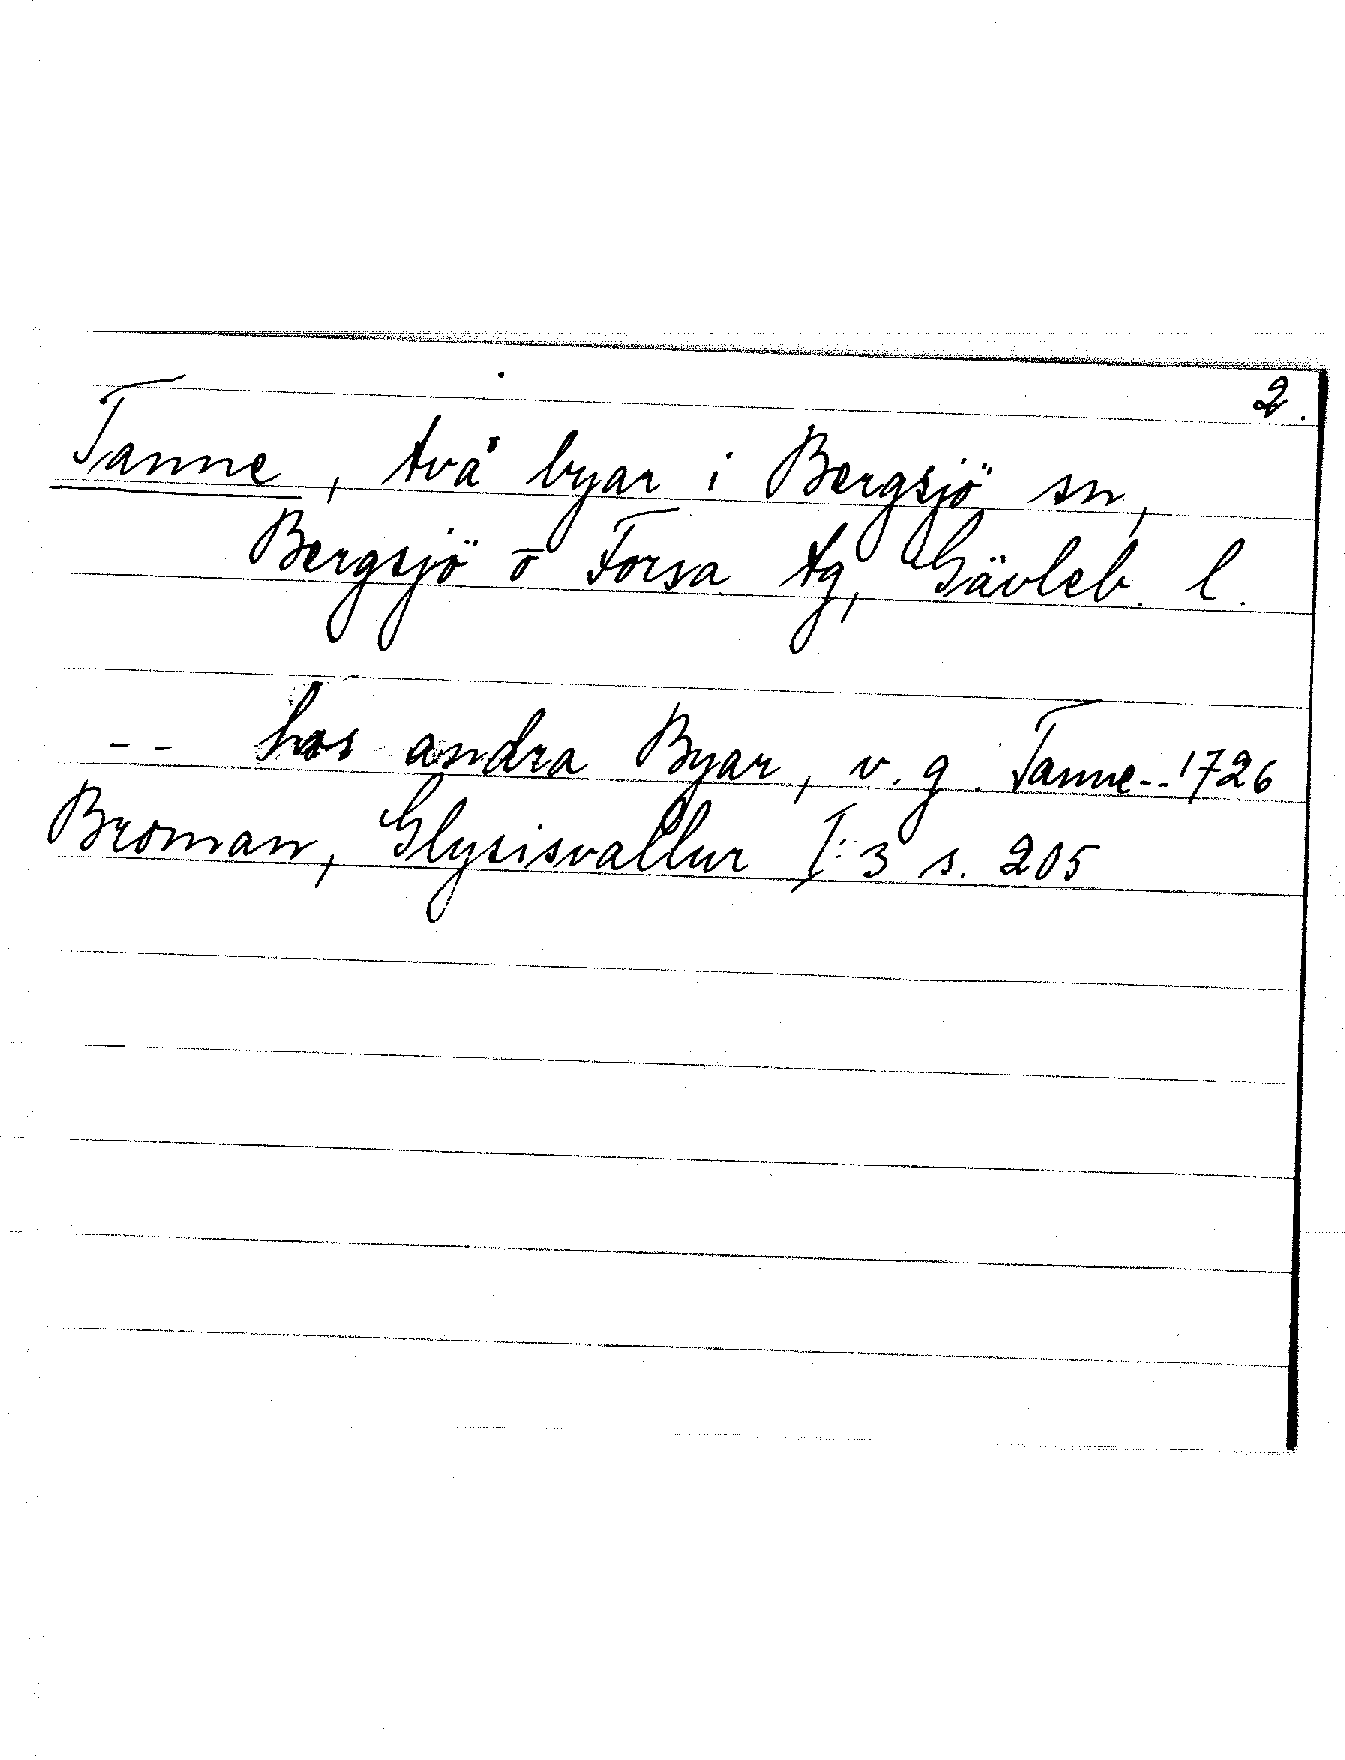 2.
Tanne, två byar i Bergsjö sn,
Bergsjö o Forsa tg, Gävleb. l.
-- hos andra Byar, v. g. Tanne -- 1726
Broman, Glysisvallur I:3 s. 205